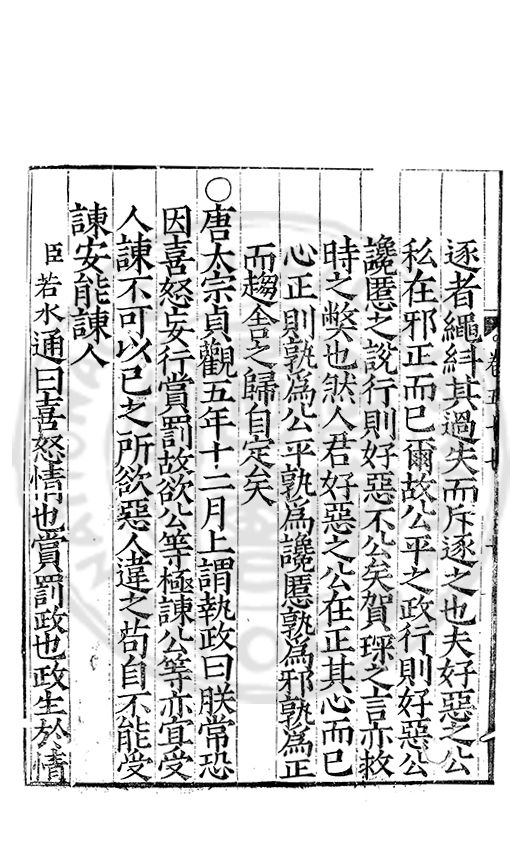 逐者繩糾其過失而斥逐之也夫好惡之公
私在邪正而已爾故公平之政行則好惡公
讒慝之說行則好惡不公矣賀琛之言亦救
時之弊也然人君好惡之公在正其心而已
心正則孰為公平孰為讒慝孰為邪孰為正
而趨舍之歸自定矣
○唐太宗貞觀五年十二月上謂執政曰朕常恐
因喜怒妄行賞罰故欲公等極諫公等亦宜受
人諫不可以己之所欲惡人違之茍自不能受
諫安能諫人
臣若水通曰喜怒情也賞罰政也政生於情